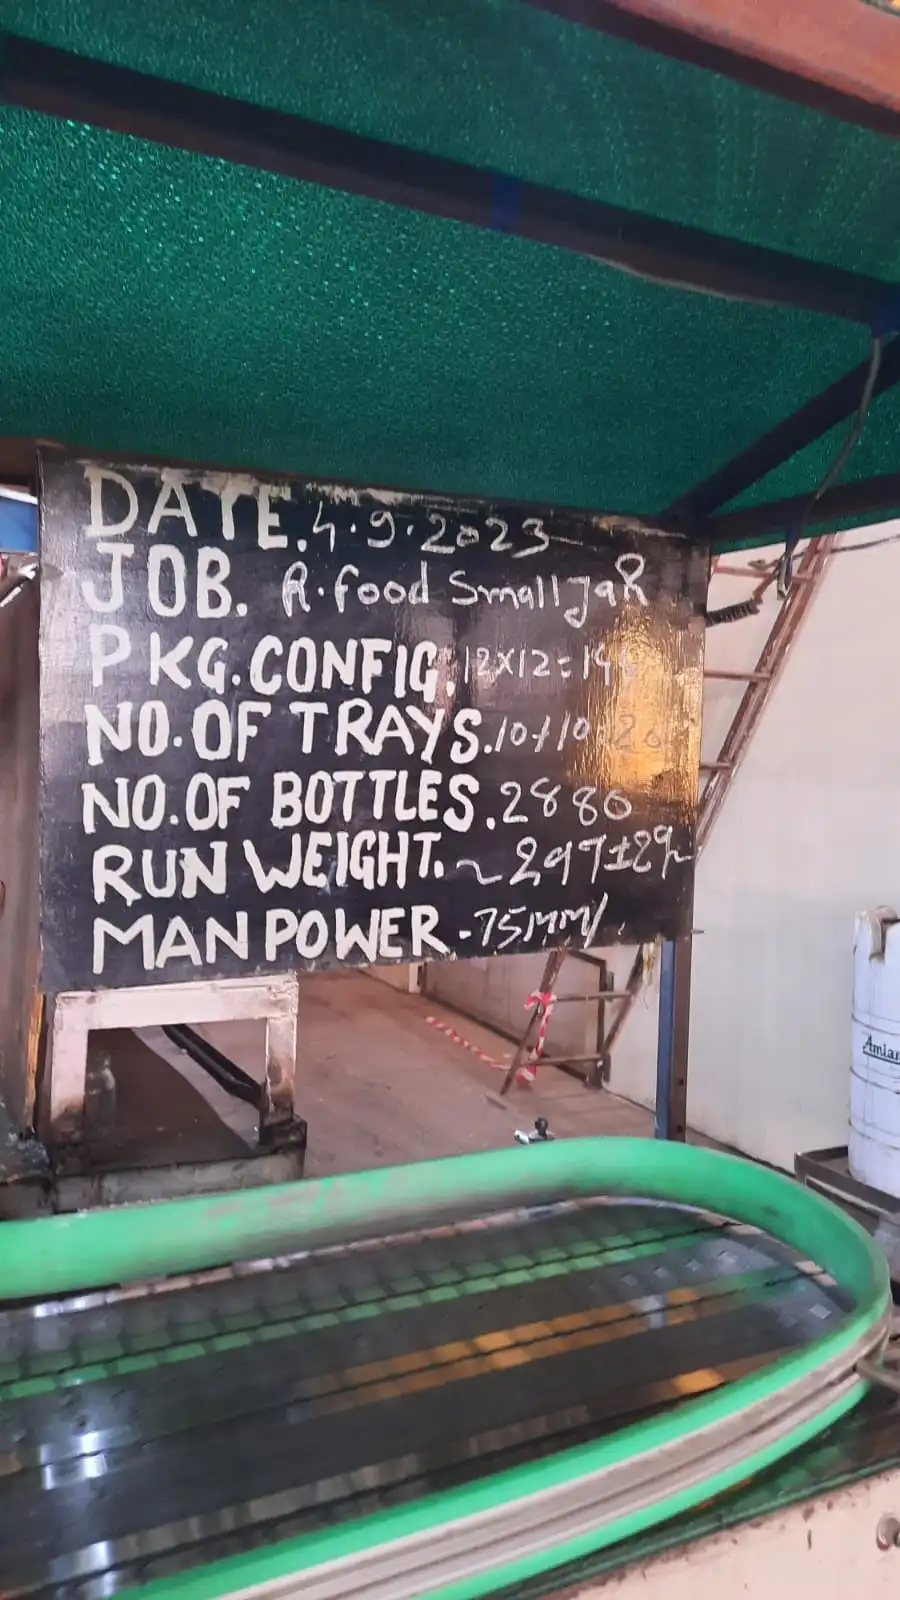 DATE. 4.9.2023
JOB. R.food Small Jar
PKG.CONFIG. 12x12=144
NO.OF TRAYS. 10+10=20
NO.OF BOTTLES. 2880
RUN WEIGHT. ~297±2%
MAN POWER - 75MM/
Amiar